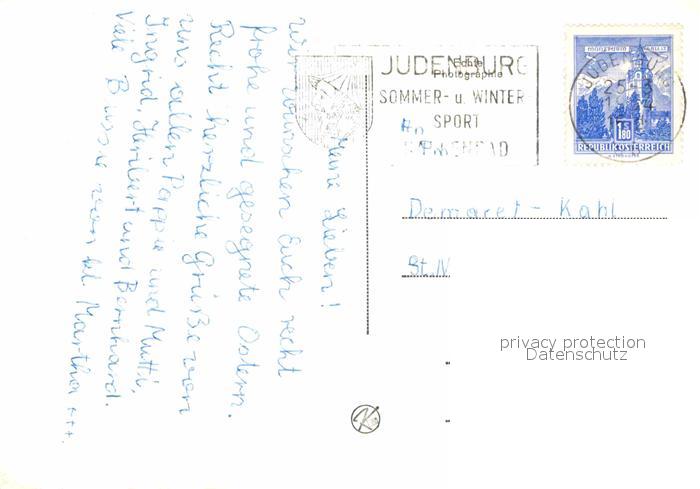 Meine Lieben!
Wir wünschen Euch recht
frohe und gesegnete Ostern.
Recht herzliche Grüße von
uns allen Pappie und Mutti,
Ingrid, Heribert und Bernhard.
Viele Bussie von kl. Martha +++.
Echte
Photographie
JUDENBURG
SOMMER- u. WINTER
SPORT
JUDENBURG
25.3
REPUBLIK ÖSTERREICH
1.80
An
Demaret - Kahl
St. N
K
privacy protection
Datenschutz